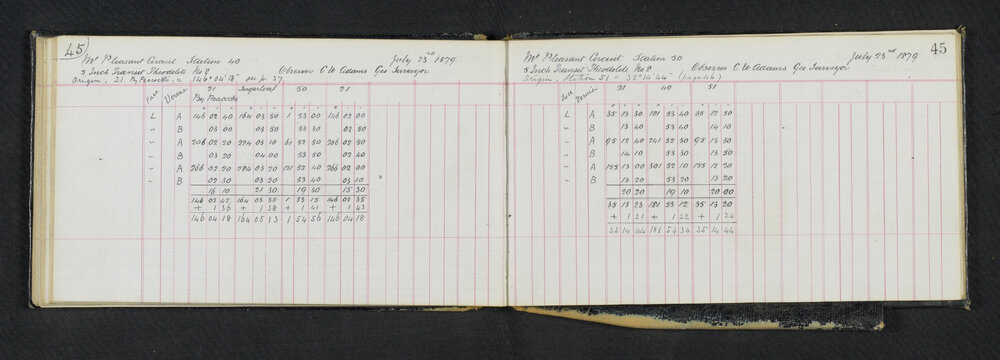 45)
Mt Pleasant Circuit Station 40 July 23rd 1879
5 Inch Transit Theodolite No 8 Observer C W Adams Geo Surveyor
Origin. 21. By Peacocks. = 146° 04' 18" see p. 37.
Face Vernier 21 Sugarloaf 50 21
By Peacocks
L A 146 02 40 164 03 50 1 53 00 146 02 00
" B 03 00 03 50 53 30 02 50
" A 206 02 20 224 03 10 61 52 50 206 02 50
" B 03 20 04 00 53 50 02 40
" A 266 02 20 284 03 20 121 52 40 266 02 00
" B 02 30 03 20 53 40 03 10
16 10 21 30 19 30 15 30
146 02 42 164 03 35 1 53 15 146 02 35
+ 1 36 + 1 38 + 1 41 + 1 43
146 04 18 164 05 13 1 54 56 146 04 18
45
Mt Pleasant Circuit Station 50 July 23rd 1879
5 Inch Transit Theodolite No 8 Observer C W Adams Geo Surveyor
Origin. Station 51 = 35° 14' 44"
Face Vernier 51 40 51
L A 35 13 30 181 53 40 35 12 50
" B 13 40 53 40 14 10
" A 95 12 40 241 52 30 95 13 30
" B 14 10 53 30 13 50
" A 155 13 00 301 52 10 155 12 20
" B 13 20 53 20 13 20
20 20 19 10 20 00
35 13 23 181 53 12 35 13 20
+ 1 21 + 1 22 + 1 24
35 14 44 181 54 34 35 14 44